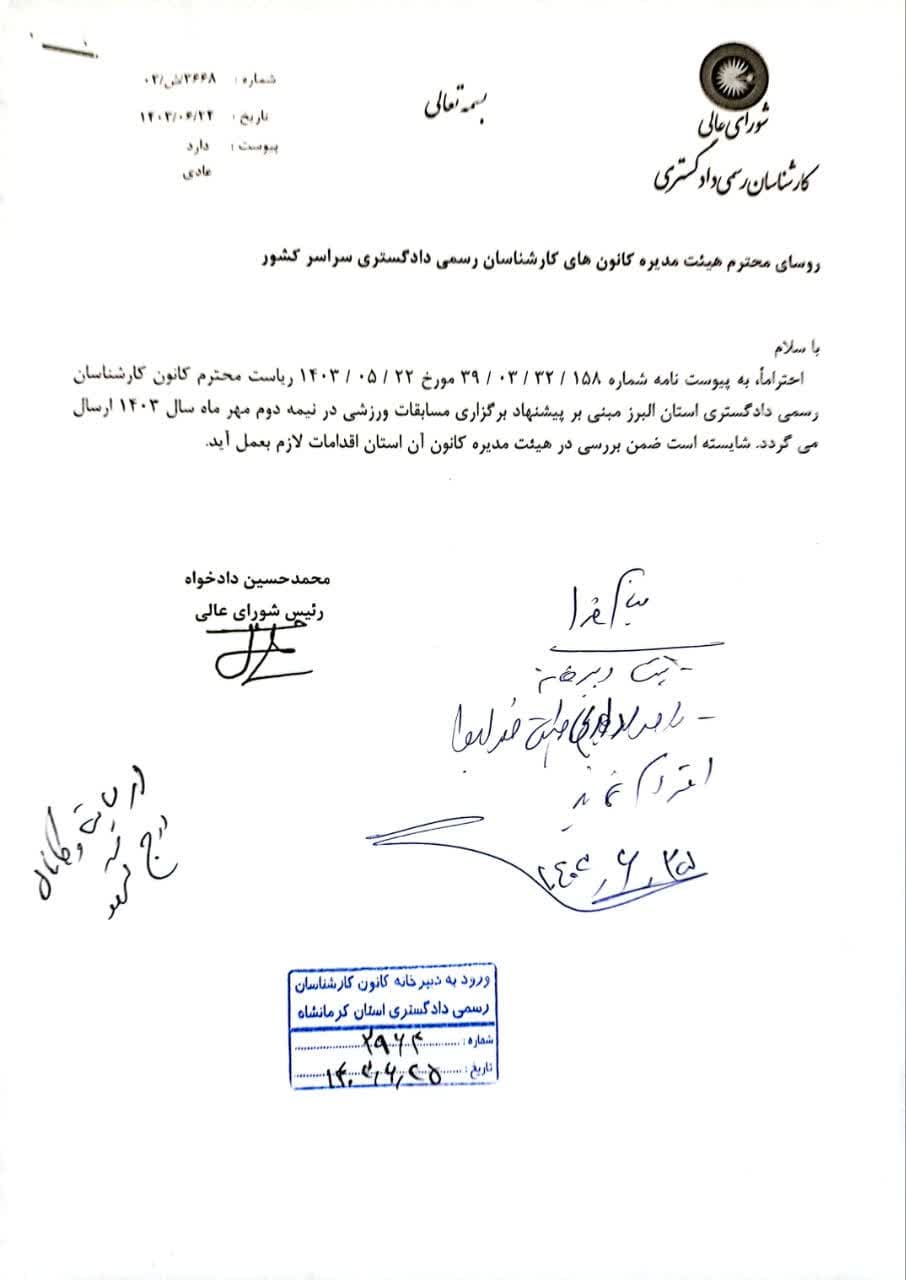 بسمه تعالی
شورای عالی
کارشناسان رسمی دادگستری
شماره : ۲۶۴۸/ش/۰۳
تاریخ : ۱۴۰۳/۰۶/۲۴
پیوست : دارد
عادی
روسای محترم هیئت مدیره کانون های کارشناسان رسمی دادگستری سراسر کشور
با سلام
احتراماً، به پیوست نامه شماره ۱۵۸ / ۳۲ / ۰۳ / ۳۹ مورخ ۲۲ / ۰۵ / ۱۴۰۳ ریاست محترم کانون کارشناسان
رسمی دادگستری استان البرز مبنی بر پیشنهاد برگزاری مسابقات ورزشی در نیمه دوم مهر ماه سال ۱۴۰۳ ارسال
می گردد. شایسته است ضمن بررسی در هیئت مدیره کانون آن استان اقدامات لازم بعمل آید.
محمدحسین دادخواه
رئیس شورای عالی
بنام خدا
- ثبت دبیرخانه
اقدام نمایید
۱۴۰۳/۶/۲۵
در سایت و کانال
درج گردد
ورود به دبیرخانه کانون کارشناسان
رسمی دادگستری استان کرمانشاه
شماره : ۲۹۶۴
تاریخ : ۱۴۰۳/۶/۲۵